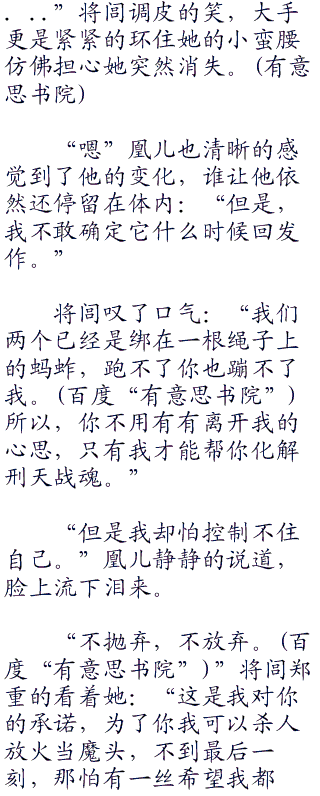 ．．．”将闾调皮的笑，大手
更是紧紧的环住她的小蛮腰
仿佛担心她突然消失。(有意
思书院)
“嗯”凰儿也清晰的感
觉到了他的变化，谁让他依
然还停留在体内：“但是，
我不敢确定它什么时候回发
作。”
将闾叹了口气：“我们
两个已经是绑在一根绳子上
的蚂蚱，跑不了你也蹦不了
我。(百度“有意思书院”)
所以，你不用有有离开我的
心思，只有我才能帮你化解
刑天战魂。”
“但是我却怕控制不住
自己。”凰儿静静的说道，
脸上流下泪来。
“不抛弃，不放弃。(百
度“有意思书院”)”将闾郑
重的看着她：“这是我对你
的承诺，为了你我可以杀人
放火当魔头，不到最后一
刻，那怕有一丝希望我都